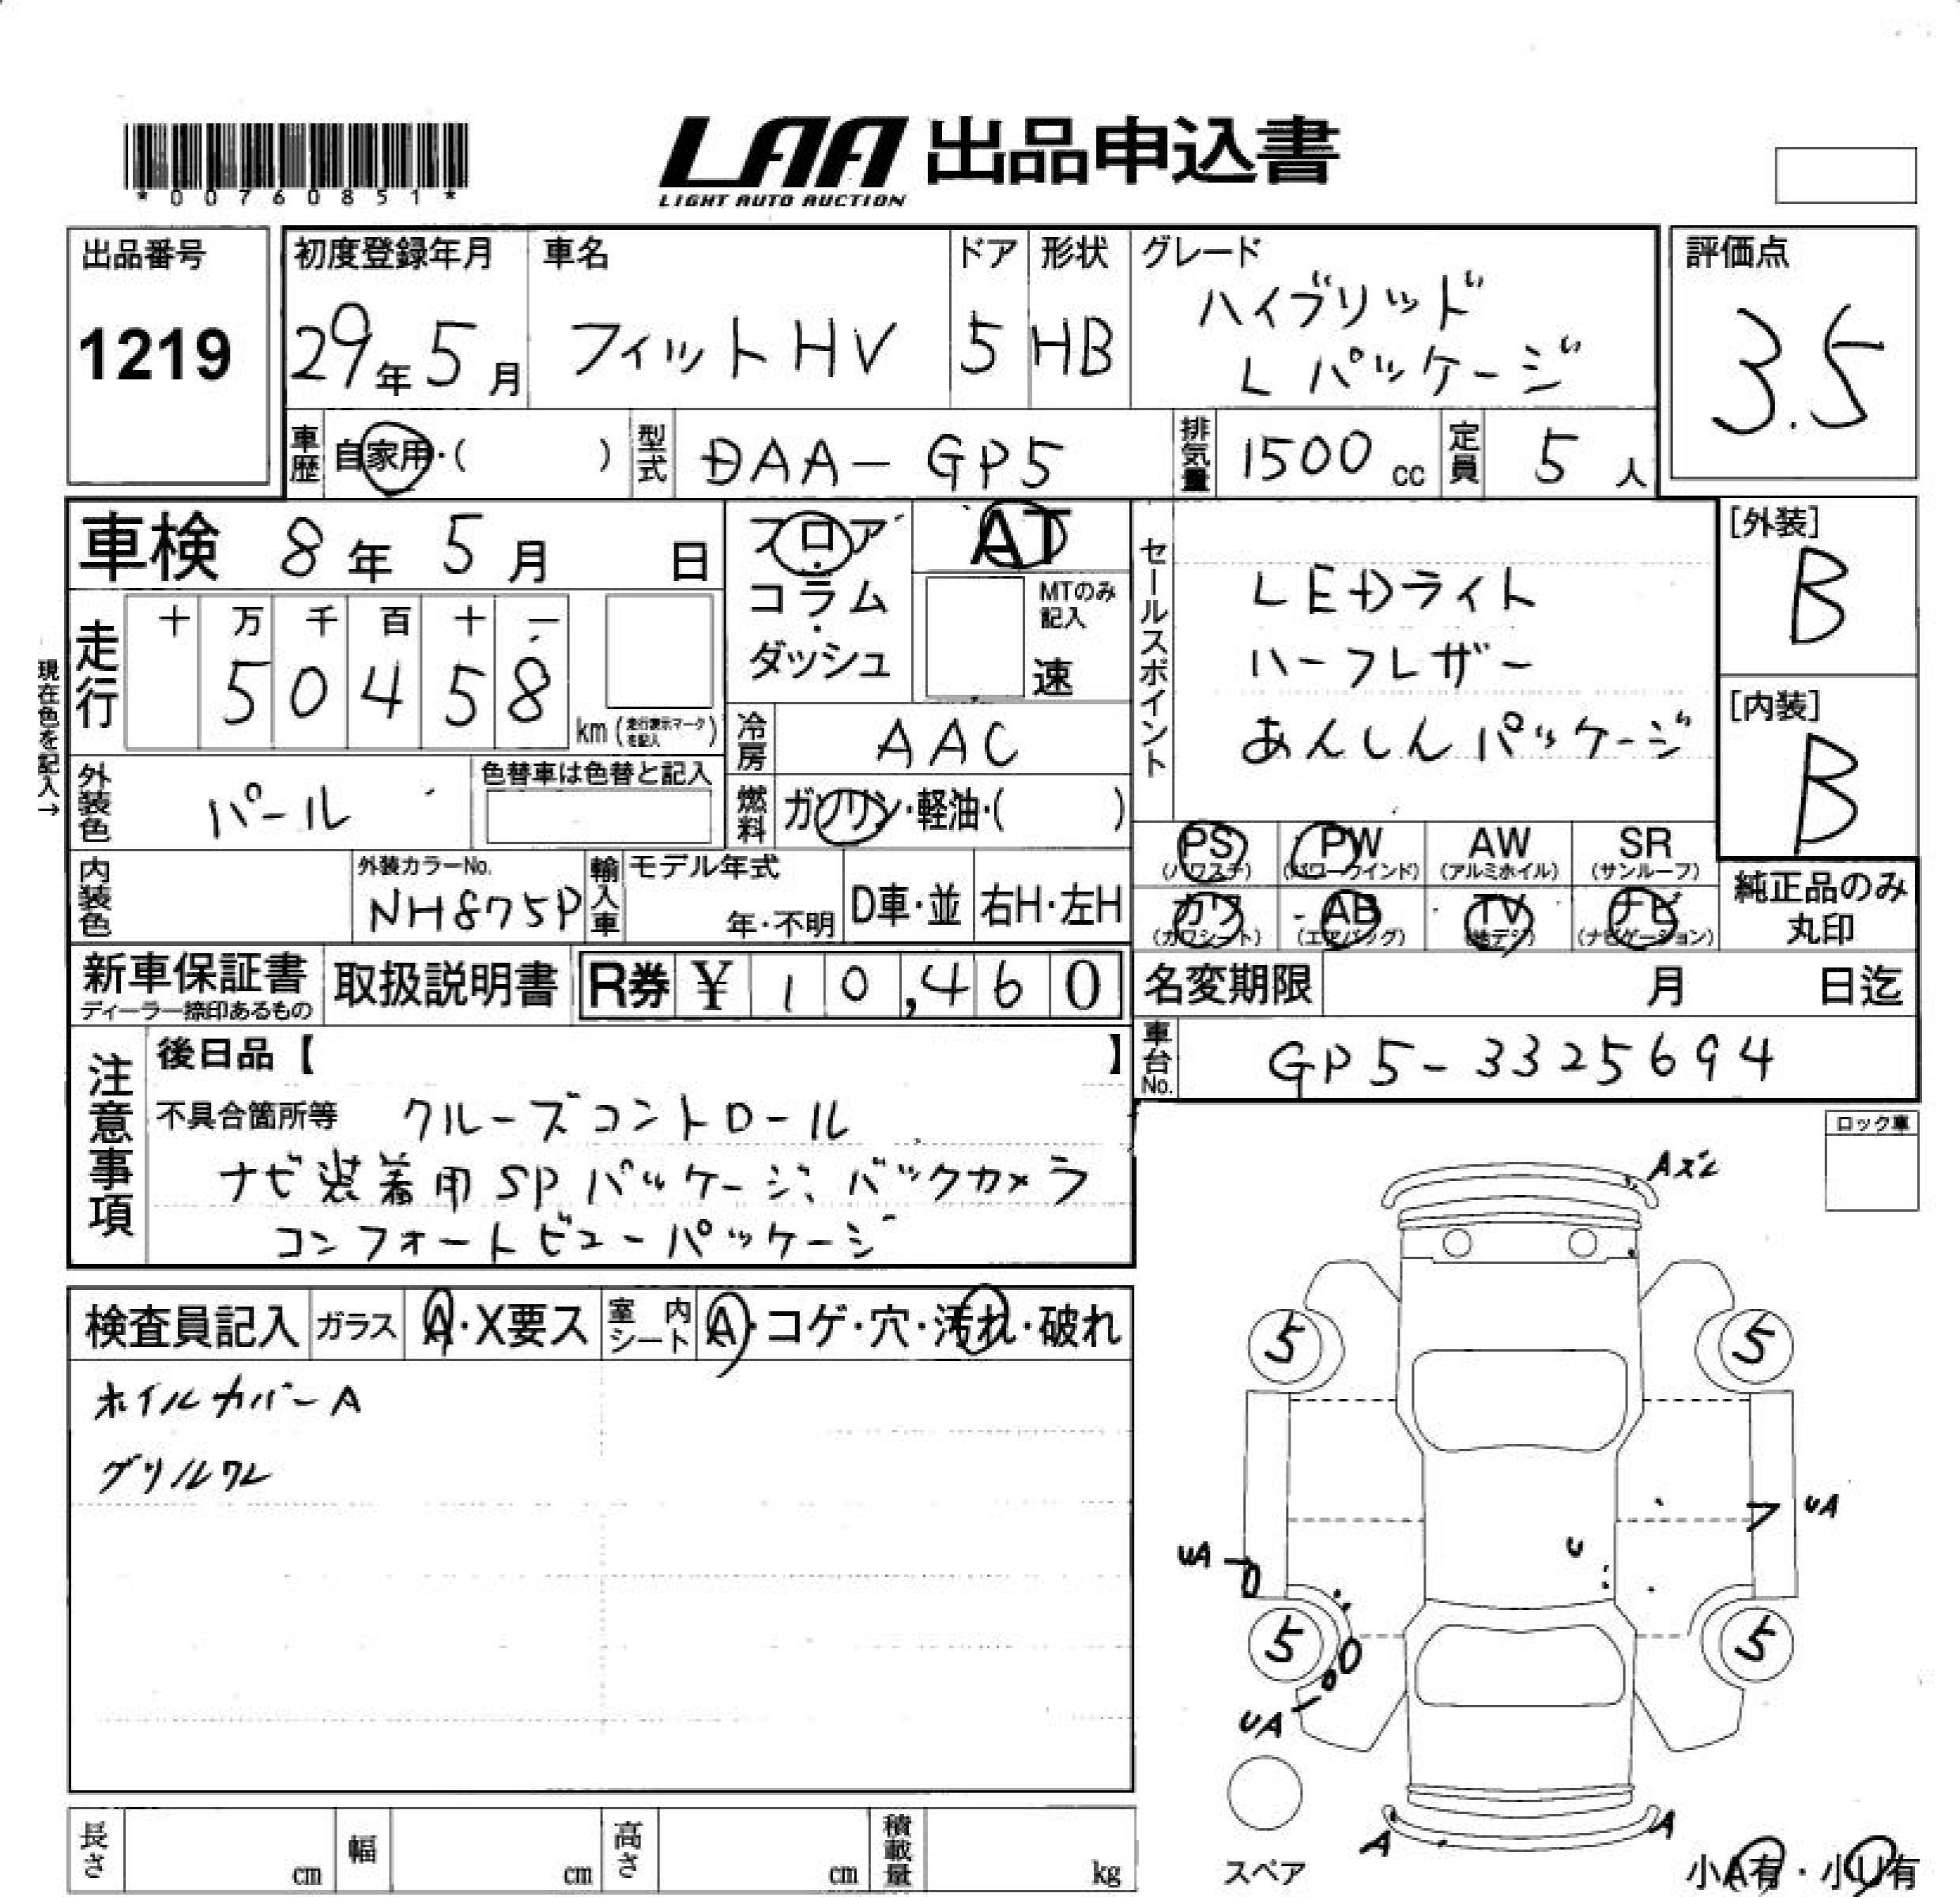 *00760851*
LAA 出品申込書
LIGHT AUTO AUCTION
出品番号
1219
初度登録年月
29年5月
車名
フィットHV
ドア
5
形状
HB
グレード
ハイブリッド
Lパッケージ
評価点
3.5
車歴
自家用・( )
型式
DAA-GP5
排気量
1500 cc
定員
5人
車検 8年5月 日
フロア・
コラム・
ダッシュ
AT
MTのみ
記入
速
セールスポイント
LEDライト
ハーフレザー
あんしんパッケージ
[外装]
B
[内装]
B
現在色を記入→
走行
十 万 千 百 十 一
5 0 4 5 8
km (走行表示マークを記入)
冷房
AAC
外装色
パール
色替車は色替と記入
燃料
ガソリン・軽油・( )
PS (パワステ)
PW (パワーウインド)
AW (アルミホイル)
SR (サンルーフ)
カワ (カワシート)
AB (エアバッグ)
TV (地デジ)
ナビ (ナビゲーション)
純正品のみ
丸印
内装色
外装カラーNo.
NH875P
輸入車
モデル年式
年・不明
D車・並
右H・左H
新車保証書
ディーラー捺印あるもの
取扱説明書
R券 ¥ 10,460
名変期限 月 日迄
車台No.
GP5-3325694
注意事項
後日品【 】
不具合箇所等 クルーズコントロール
ナビ装着用SPパッケージ、バックカメラ
コンフォートビューパッケージ
ロック車
検査員記入
ガラス
A・X要ス
室内シート
A・コゲ・穴・汚れ・破れ
ホイルカバーA
グリルワレ
Aズレ
5
5
UA
UA
U
5
5
UA
A
A
スペア
小A有・小U有
長さ cm
幅 cm
高さ cm
積載量 kg